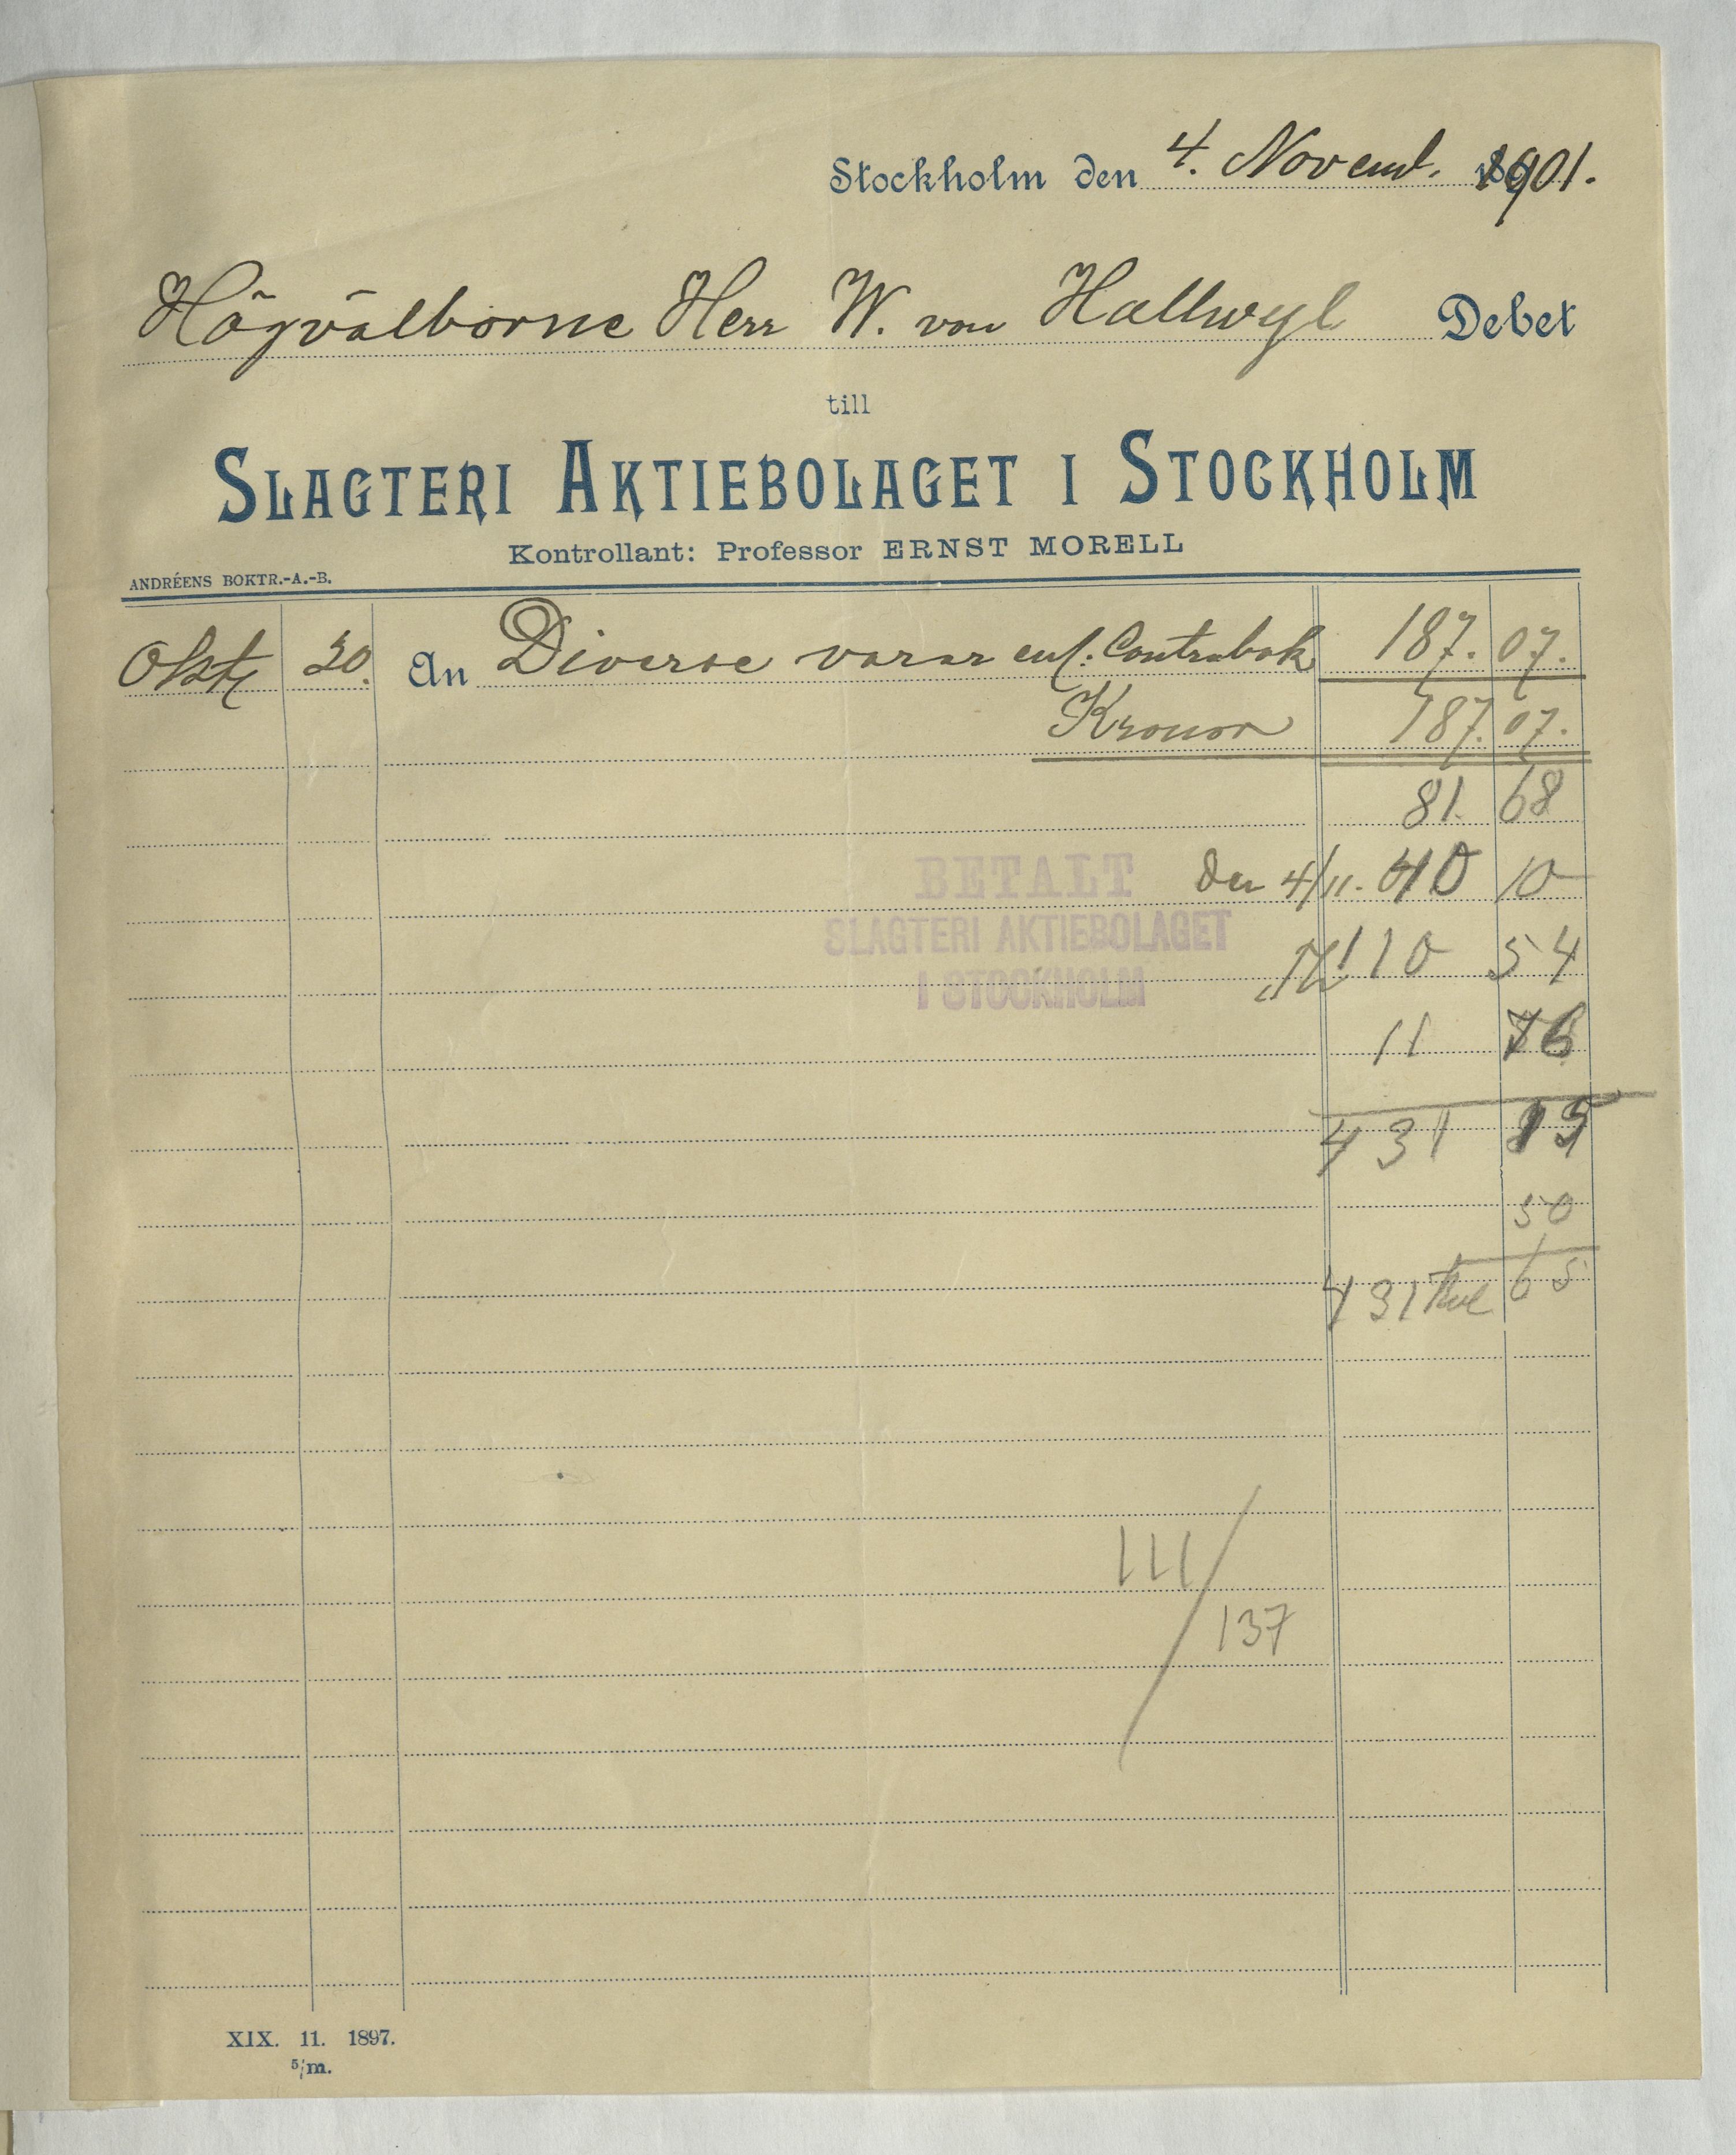 Stockholm den 4. Novemb. 1901.
Högvälborne Herr W. von Hallwyl Debet
till
SLAGTERI AKTIEBOLAGET I STOCKHOLM
Kontrollant: Professor ERNST MORELL
ANDRÉENS BOKTR.-A.-B.
Okt 30. An Diverse varor enl: Contrabok 187. 07.
Kronor 187. 07.
81. 68
BETALT
den 4/11. 40 10
SLAGTERI AKTIEBOLAGET
110 54
I STOCKHOLM
11 76
431 15
50
431 65
111/137
XIX. 11. 1897.
5/m.